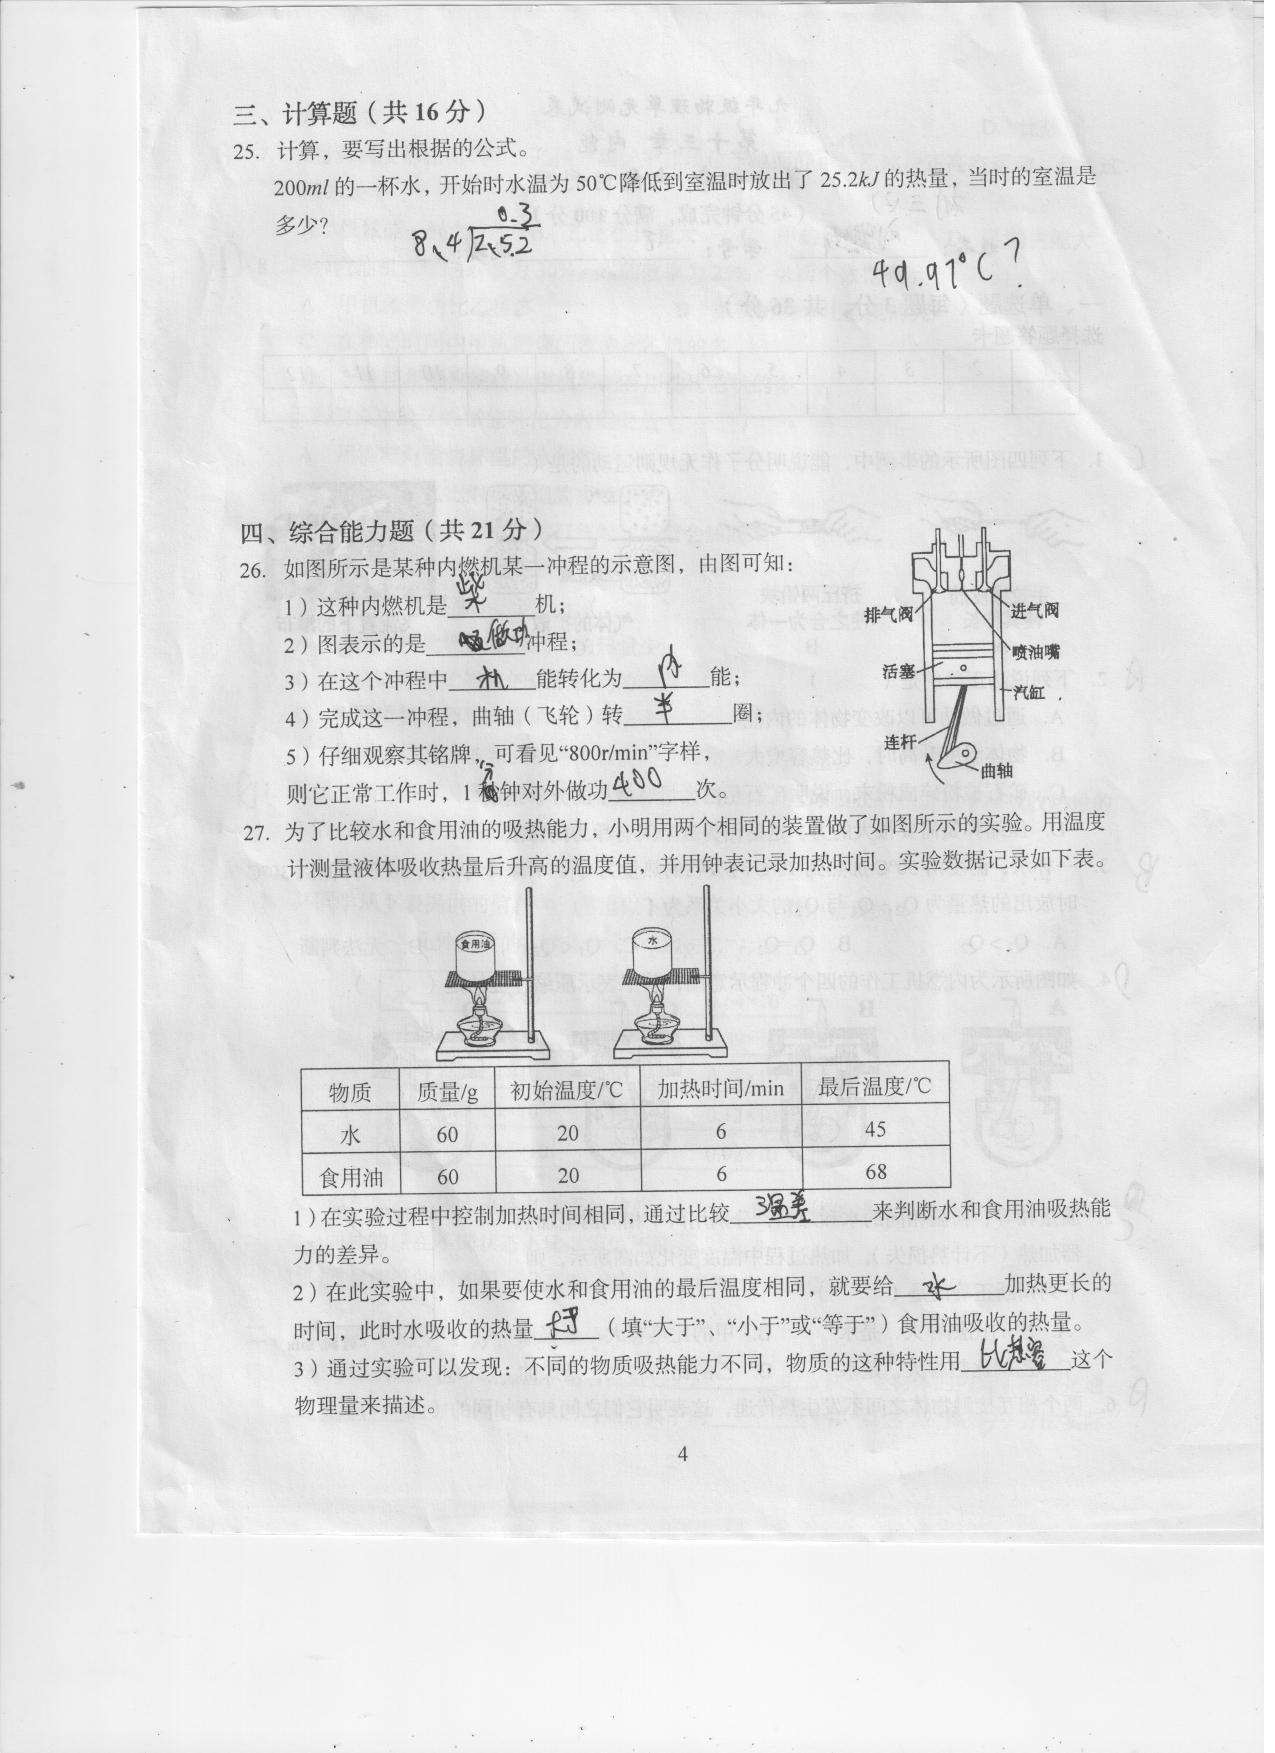 三、计算题（共16分）
25. 计算，要写出根据的公式。
200ml的一杯水，开始时水温为50℃降低到室温时放出了25.2kJ的热量，当时的室温是
多少？
0.3
8.4 25.2
49.97°C？
四、综合能力题（共21分）
26. 如图所示是某种内燃机某一冲程的示意图，由图可知：
1）这种内燃机是 柴 机；
2）图表示的是 做功 冲程；
3）在这个冲程中 机 能转化为 内 能；
4）完成这一冲程，曲轴（飞轮）转 半 圈；
5）仔细观察其铭牌，可看见“800r/min”字样，
则它正常工作时，1 分钟对外做功 400 次。
排气阀
进气阀
喷油嘴
活塞
汽缸
连杆
曲轴
27. 为了比较水和食用油的吸热能力，小明用两个相同的装置做了如图所示的实验。用温度
计测量液体吸收热量后升高的温度值，并用钟表记录加热时间。实验数据记录如下表。
食用油
水
物质 质量/g 初始温度/℃ 加热时间/min 最后温度/℃
水 60 20 6 45
食用油 60 20 6 68
1）在实验过程中控制加热时间相同，通过比较 温差 来判断水和食用油吸热能
力的差异。
2）在此实验中，如果要使水和食用油的最后温度相同，就要给 水 加热更长的
时间，此时水吸收的热量 大于 （填“大于”、“小于”或“等于”）食用油吸收的热量。
3）通过实验可以发现：不同的物质吸热能力不同，物质的这种特性用 比热容 这个
物理量来描述。
4